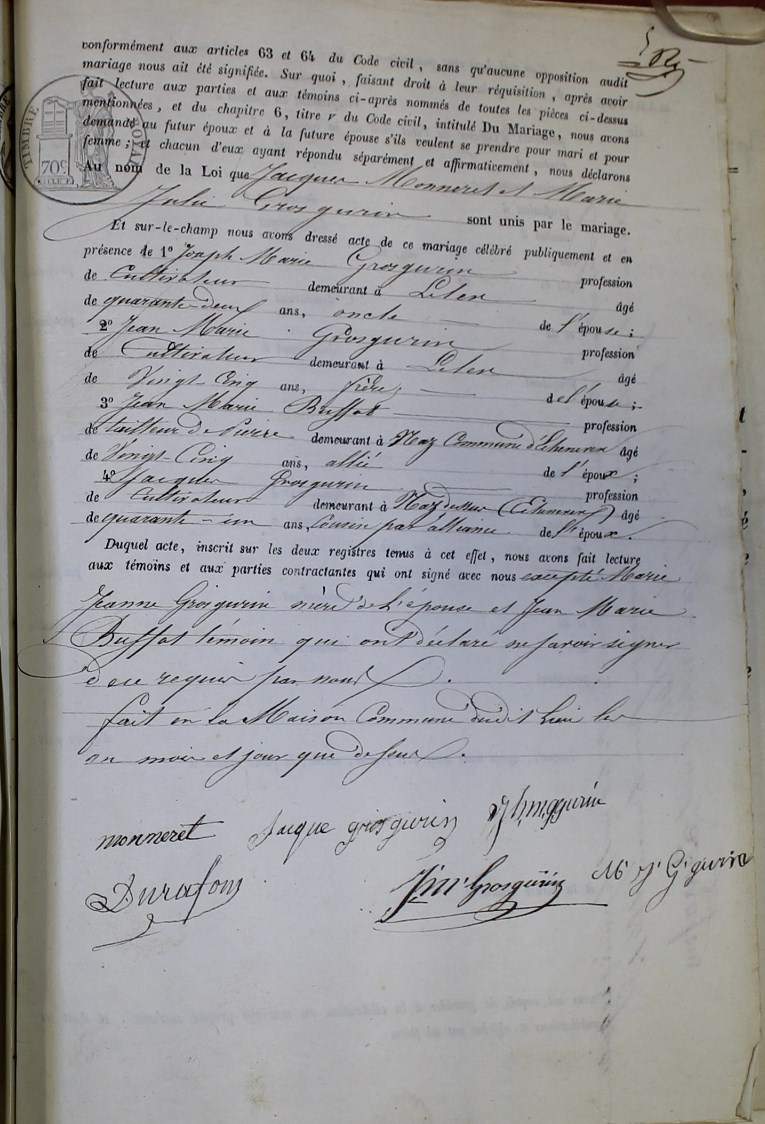 conformément aux articles 63 et 64 du Code civil, sans qu'aucune opposition audit
mariage nous ait été signifiée. Sur quoi, faisant droit à leur réquisition, après avoir
fait lecture aux parties et aux témoins ci-après nommés de toutes les pièces ci-dessus
mentionnées, et du chapitre 6, titre v du Code civil, intitulé Du Mariage, nous avons
demandé au futur époux et à la future épouse s'ils veulent se prendre pour mari et pour
femme; et chacun d'eux ayant répondu séparément et affirmativement, nous déclarons
TIMBRE ROYAL
70c
Au nom de la Loi que Jacques Monneret et Marie
Julie Grosgurin sont unis par le mariage.
Et sur-le-champ nous avons dressé acte de ce mariage célébré publiquement et en
présence de 1º Joseph Marie Grosgurin profession
de Cultivateur demeurant à Lelex âgé
de quarante-deux ans, oncle de l'épouse;
2º Jean Marie Grosgurin profession
de Cultivateur demeurant à Lelex âgé
de Vingt Cinq ans, frère de l'épouse;
3º Jean Marie Buffat profession
de tailleur de Pierre demeurant à Naz Commune d'Echenevex âgé
de Vingt Cinq ans, allié de l'époux;
4º Jacques Grosgurin profession
de Cultivateur demeurant à Naz dessus (Echenevex) âgé
de quarante-un ans Cousin par alliance de l'époux.
Duquel acte, inscrit sur les deux registres tenus à cet effet, nous avons fait lecture
aux témoins et aux parties contractantes qui ont signé avec nous excepté Marie
Jeanne Grosgurin mère de l'épouse et Jean Marie
Buffat témoin qui ont déclaré ne savoir signer
de ce requis par nous
fait en la Maison Commune dudit lieu les
an mois et jour que dessus.
monneret Jacque grosgurin
Durafour Jn Mi Grosgurin Mi Ji Gigurin